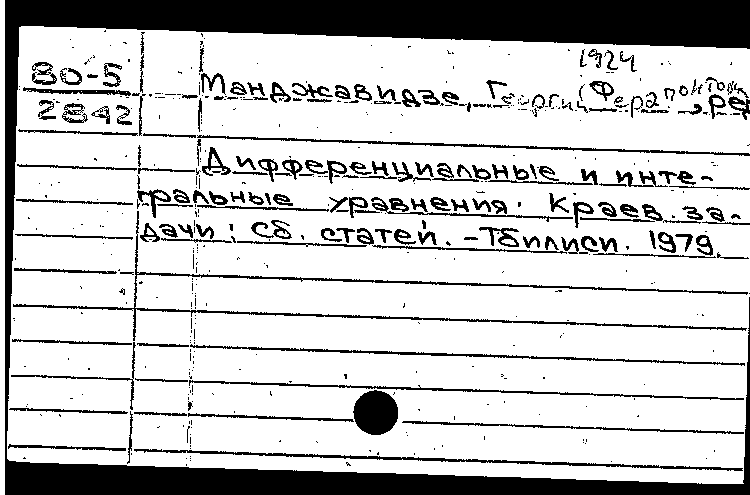 1924
80-5
2842
Манджавидзе, Георгий (Ферапонтович, ред
Дифференциальные и инте-
гральные уравнения. Краев. за-
дачи: Сб. статей. - Тбилиси. 1979.